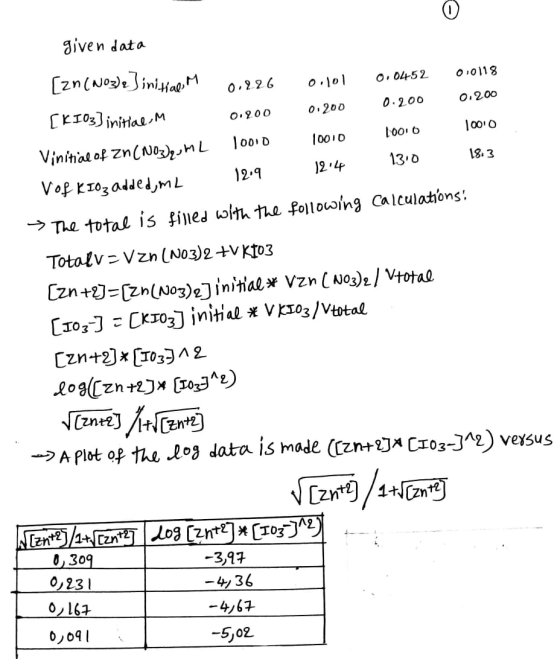 ①
given data
[Zn(NO3)2]initial, M 0.226 0.101 0.0452 0.0118
[KIO3]initial, M 0.200 0.200 0.200 0.200
Vinitial of Zn(NO3)2, mL 100.0 100.0 100.0 100.0
V of KIO3 added, mL 12.9 12.4 13.0 18.3
→ The total is filled with the following Calculations:
Total V = V Zn(NO3)2 + V KIO3
[Zn+2] = [Zn(NO3)2] initial * V Zn(NO3)2 / Vtotal
[IO3-] = [KIO3] initial * V KIO3 / Vtotal
[Zn+2] * [IO3-]^2
log([Zn+2] * [IO3-]^2)
√[Zn+2] / 1+√[Zn+2]
→ A plot of the log data is made ([Zn+2] * [IO3-]^2) versus
√[Zn+2] / 1+√[Zn+2]
√[Zn+2] / 1+√[Zn+2] log [Zn+2] * [IO3-]^2)
0,309 -3,97
0,231 -4,36
0,167 -4,67
0,091 -5,02